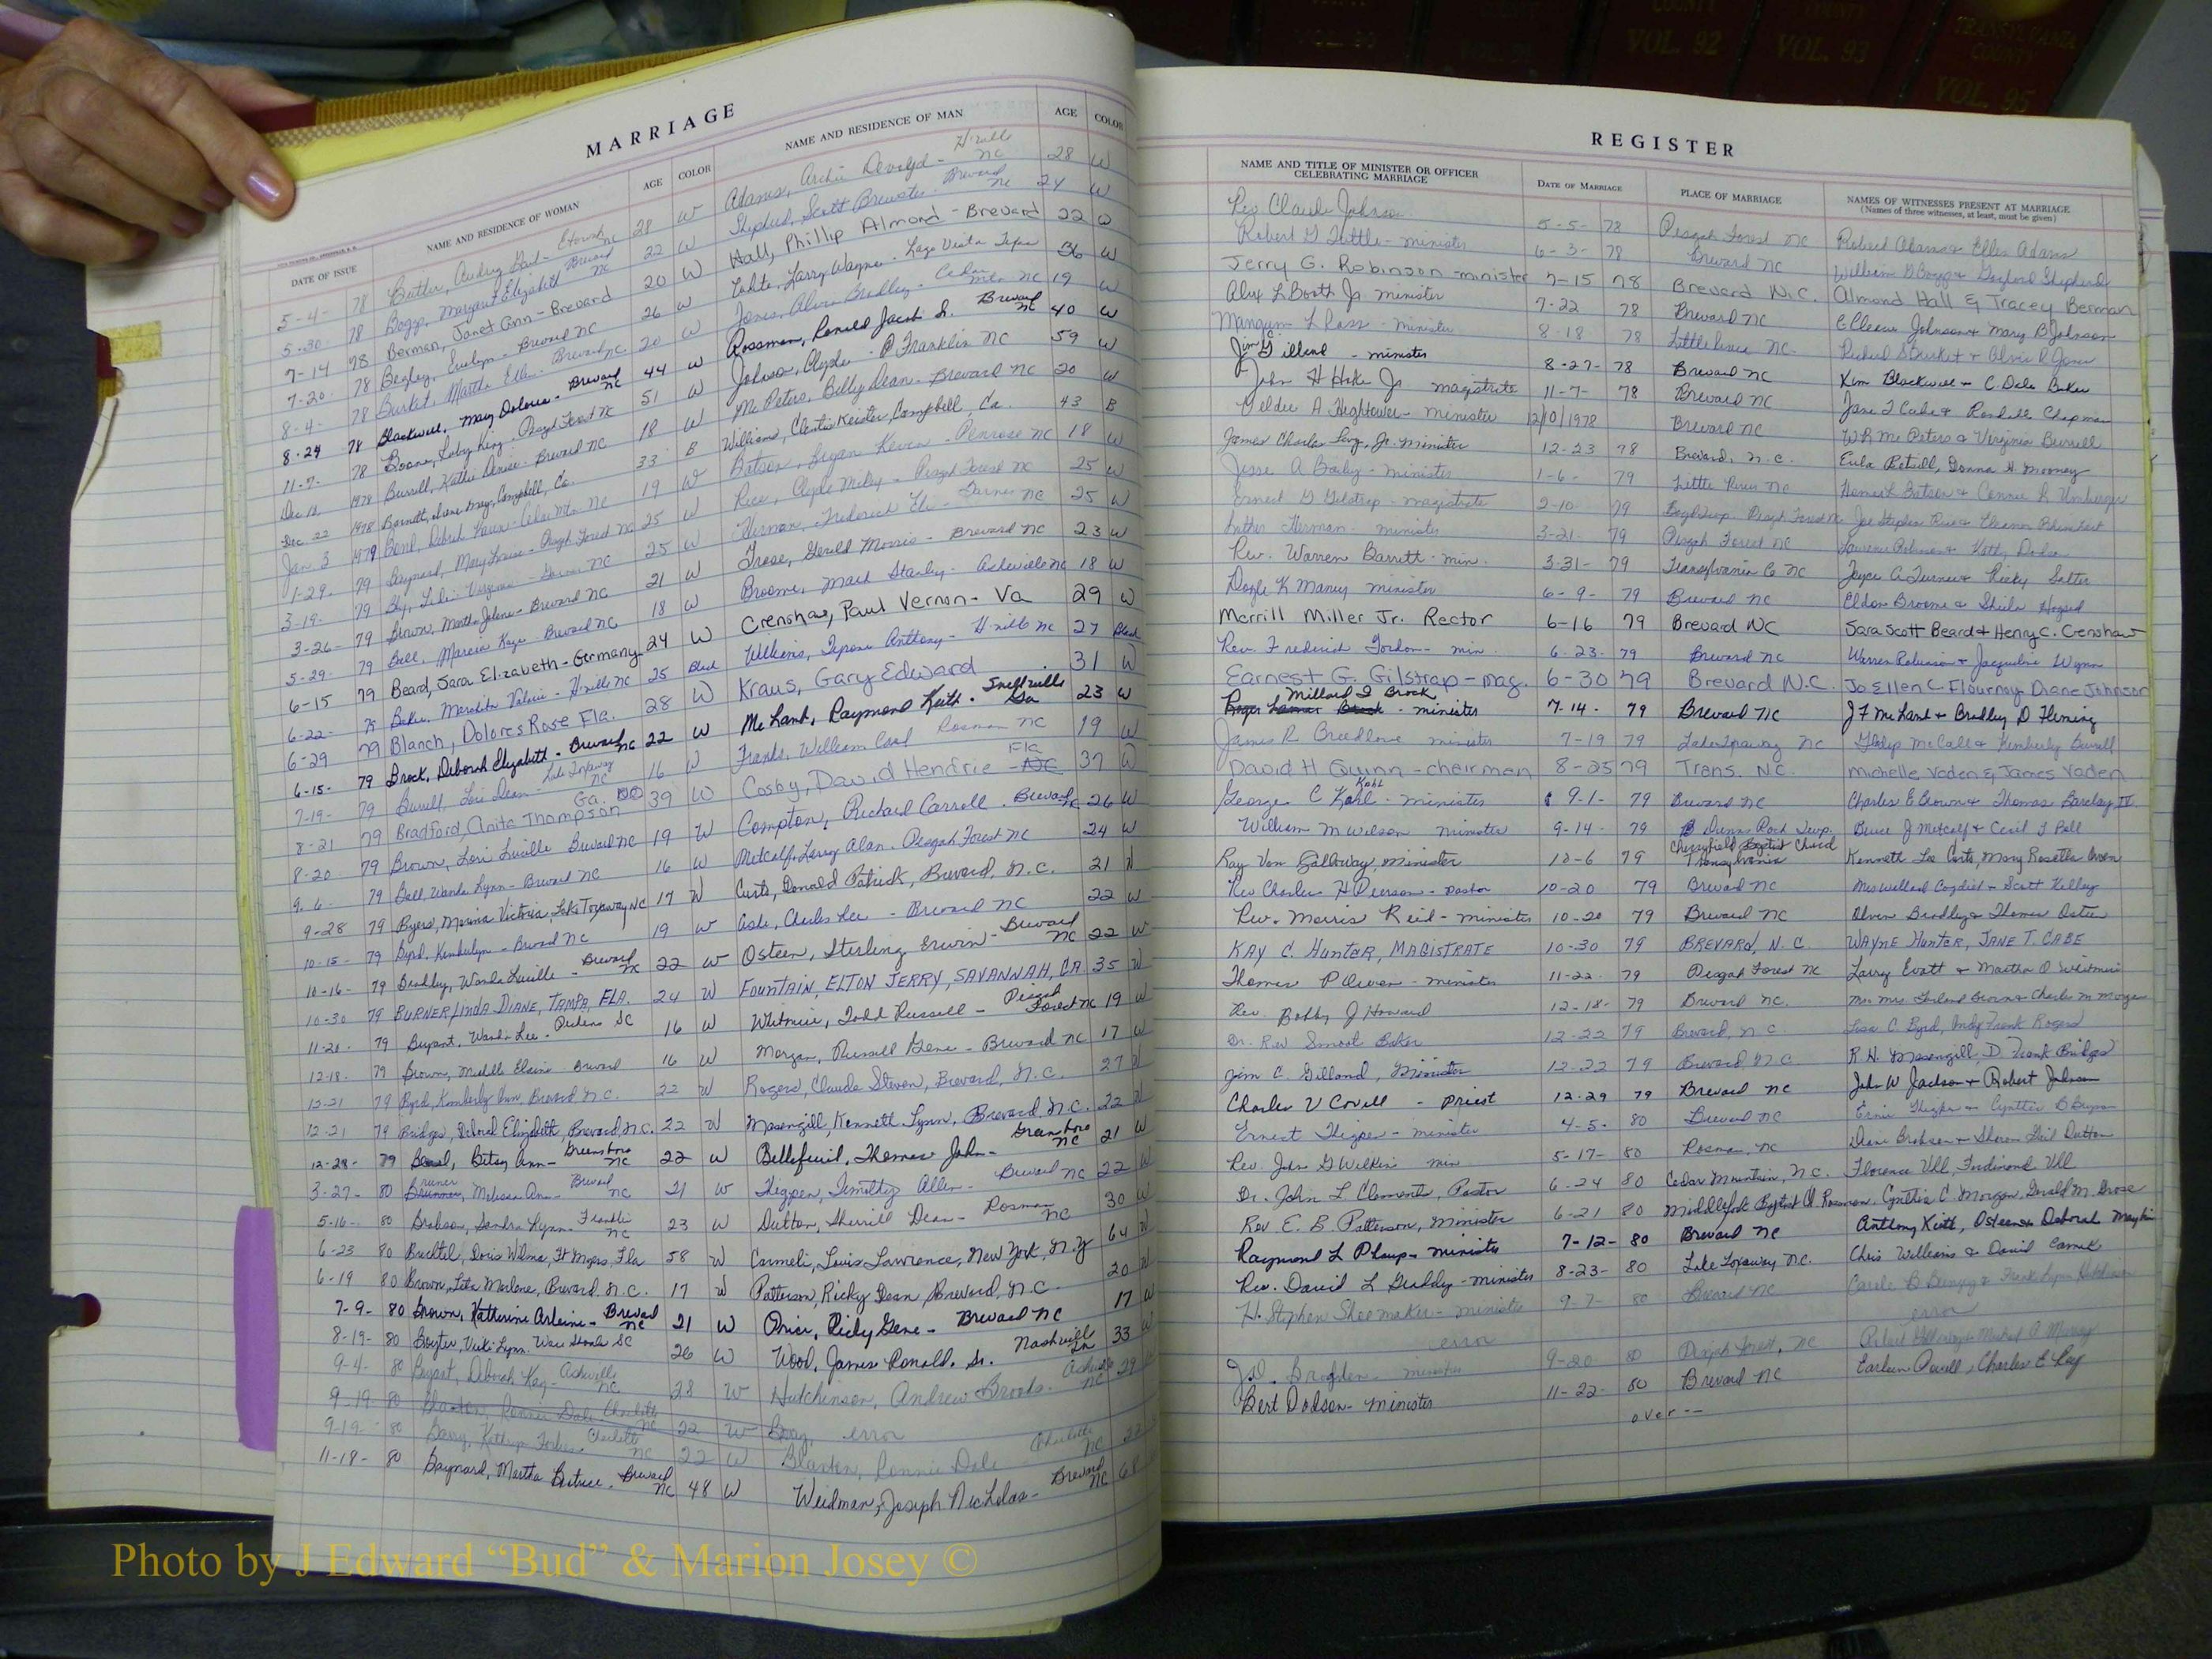 COUNTY
VOL. 92
COUNTY
VOL. 93
TRANSYLVANIA
COUNTY
VOL. 95
MARRIAGE
DATE OF ISSUE
NAME AND RESIDENCE OF WOMAN
AGE
COLOR
NAME AND RESIDENCE OF MAN
AGE
COLOR
5-4- 78 Butler, Audrey 28 W Adams, Archie NC 28 W
5-30- 78 Boggs, Margaret Elizabeth Brevard NC 22 W Shepherd, Scott Brewster - Brevard NC 24 W
7-14 78 Berman, Janet Ann - Brevard 20 W Hall, Phillip Almond - Brevard 22 W
7-20- 78 Begley, Evelyn - Brevard NC 26 W Larry Wayne - Lago Vista Texas 36 W
8-4- 78 Burket, Martha Ellen - Brevard NC 20 W Jones, Alvin Bradley - Cedar Mtn NC 19 W
8-24 78 Blackwell, Mary Dolores - Brevard NC 44 W Rossman, Ronald Jacob Brevard NC 40 W
11-7- 78 Boone, Ruby King - Pisgah Forest NC 51 W Johnson, Clyde - Franklin NC 59 W
Dec 1978 Burrell, Kathie Denise - Brevard NC 18 W McPeters, Billy Dean - Brevard NC 20 W
Dec 22 1978 Barnett, Campbell, Co. 33 B Williams, Curtis Keister, Campbell, Co. 43 B
Jan 3 1979 Bond, Deborah Karen - Cedar Mtn NC 19 W Batson, Bryan Kevin - Penrose NC 18 W
1-29- 79 Baynard, Mary Louise - Pisgah Forest NC 25 W Rice, Clyde - Pisgah Forest NC 25 W
3-19- 79 Virginia NC 25 W Herman, Frederick NC 25 W
3-26- 79 Brown, Martha Jolene - Brevard NC 21 W Trase, Gerald Morris - Brevard NC 23 W
5-29- 79 Ball, Marcia Kaye - Brevard NC 18 W Broome, Mark Stanly - Asheville NC 18 W
6-15 79 Beard, Sara Elizabeth - Germany 24 W Crenshaw, Paul Vernon - Va 29 W
6-22- 79 Baker, Meredith Valerie - H'ville NC 25 Black Williams, Anthony - H'ville NC 27 Black
6-29 79 Blanch, Dolores Rose Fla. 28 W Kraus, Gary Edward 31 W
6-15- 79 Brock, Deborah Elizabeth - Brevard NC 22 W McLamb, Raymond Keith - Snellville Ga 23 W
7-19- 79 Burrell, Lori Dean - Lake Toxaway NC 16 W Franks, William Carl Rosman NC 19 W
8-21 79 Bradford, Anita Thompson Ga. 39 W Cosby, David Hendrie - Fla 37 W
8-20- 79 Brown, Lori Lucille Brevard NC 19 W Compton, Richard Carroll - Brevard NC 26 W
9-6- 79 Ball, Wanda Lynn - Brevard NC 16 W Metcalf, Larry Alan - Pisgah Forest NC 24 W
9-28 79 Byers, Morina Victoria, Lake Toxaway NC 17 W Curto, Donald Patrick, Brevard, N.C. 21 W
10-15- 79 Byrd, Kimberlyn - Brevard NC 19 W Cash, Charles Lee - Brevard NC 22 W
10-16- 79 Bradley, Wanda Lucille - Brevard NC 22 W Osteen, Sterling Erwin - Brevard NC 22 W
10-30 79 BURNER, LINDA DIANE, TAMPA, FLA. 24 W FOUNTAIN, ELTON JERRY, SAVANNAH, GA 35 W
11-20- 79 Bryant, Wanda Lee - Pickens SC 16 W Whitmire, Todd Russell - Pisgah Forest NC 19 W
12-18- 79 Brown, Michelle Elaine Brevard 16 W Morgan, Russell Gene - Brevard NC 17 W
12-21 79 Byrd, Kimberly Ann, Brevard N.C. 22 W Rogers, Claude Steven, Brevard, N.C. 27 W
12-21 79 Bridges, Deborah Elizabeth, Brevard, N.C. 22 W Massengill, Kenneth Lynn, Brevard, N.C. 22 W
12-28- 79 Betsy Ann - Greensboro NC 22 W Bellefeuil, Thomas John - Greensboro NC 21 W
3-27- 80 Melissa Ann - Brevard NC 21 W Thigpen, Timothy Allen - Brevard NC 22 W
5-16- 80 Brabson, Sandra Lynn - Franklin NC 23 W Dutton, Sherrill Dean - Rosman NC 30 W
6-23 80 Bechtel, Doris Wilma, Ft Myers, Fla 58 W Carmeli, Louis Lawrence, New York, N.Y 64 W
6-19 80 Brown, Leta Marlene, Brevard, N.C. 17 W Patterson, Ricky Dean, Brevard, N.C. 20 W
7-9- 80 Brown, Katherine Arleine - Brevard NC 21 W Price, Ricky Gene - Brevard NC 17 W
8-19- 80 Vicki Lynn - SC 26 W Wood, James Ronald, Sr. Nashville Tn 33 W
9-4- 80 Bryant, Deborah Kay - Asheville NC 28 W Hutchinson, Andrew Brooks - Asheville NC 29
9-19- 80 Blanton, Ronnie Dale - Charlotte NC 22 W error
9-19- 80 Kathryn Charlotte NC 22 W Blanton, Ronnie Dale Charlotte NC 22
11-18- 80 Baynard, Martha Beatrice - Brevard NC 48 W Weidman, Joseph Nicholas - Brevard NC 68
REGISTER
NAME AND TITLE OF MINISTER OR OFFICER CELEBRATING MARRIAGE
DATE OF MARRIAGE
PLACE OF MARRIAGE
NAMES OF WITNESSES PRESENT AT MARRIAGE
(Names of three witnesses, at least, must be given)
Rev Claude Johnson 5-5- 78 Pisgah Forest NC Robert Adams & Ellen Adams
Robert G Tuttle - minister 6-3- 78 Brevard NC William D Boggs & Gaylord Shepherd
Jerry G. Robinson - minister 7-15 78 Brevard N.C. Almond Hall & Tracey Berman
Alex L Booth Jr minister 7-22 78 Brevard NC C Cleave Johnson & Mary B Johnson
Mangum L Ross - minister 8-18 78 Little River NC. Richard & Alvin R Jones
Jim G Gilland - minister 8-27- 78 Brevard NC Kim Blackwell & C. Dale Baker
John H Hoke Jr magistrate 11-7- 78 Brevard NC Jane T Cabe & Rondall Chapman
Geldie A Hightower - minister 12/10/1978 Brevard NC W.R. McPeters & Virginia Burrell
James Charles Jr. minister 12-23 78 Brevard, N.C. Eula Donna G. Mooney
Jesse A Baily - minister 1-6- 79 Little River NC Batson & Connie
Ernest G Gilstrap - magistrate 2-10 79 Pisgah Forest NC Joe Stephen & Eleanor
Luther Herman - minister 3-21- 79 Pisgah Forest NC Robinson & Kathy
Rev. Warren Barrett - min. 3-31- 79 Transylvania Co NC Joyce A. Turner & Ricky Salter
Doyle K Maney minister 6-9- 79 Brevard NC Eldon Broome & Sheila
Merrill Miller Jr. Rector 6-16 79 Brevard NC Sara Scott Beard & Henry C. Crenshaw
Rev. Frederick Gordon - min. 6-23- 79 Brevard NC Warren Robinson & Jacqueline Wynn
Earnest G. Gilstrap - mag. 6-30 79 Brevard N.C. Jo Ellen C. Flournoy Diane Johnson
Millard I Brock - minister 7-14- 79 Brevard NC J F McLamb & Bradley D Fleming
James R Breedlove minister 7-19 79 Lake Toxaway NC McCall & Kimberly Burrell
David H Quinn - chairman 8-25 79 Trans. NC. Michelle Vaden & James Vaden
George C Kahl - minister 9-1- 79 Brevard NC Charles E Brown & Thomas Barclay IV
William M Wilson minister 9-14- 79 Dunns Rock Twp. Bruce J Metcalf & Cecil J Ball
Ray Von Galloway, minister 10-6 79 Cherryfield Baptist Church Transylvania Kenneth Lee Curto, Mary Rosella Owen
Rev Charles H Pierson - pastor 10-20 79 Brevard NC Mrs Willard Cogdill - Scott Kelley
Rev. Morris Reid - minister 10-20 79 Brevard NC Olven Bradley & Thomas Osteen
KAY C. HUNTER, MAGISTRATE 10-30 79 BREVARD, N.C. WAYNE HUNTER, JANE T. CABE
Thomas P Owen - minister 11-22- 79 Pisgah Forest NC Larry Evatt & Martha O Whitmire
Rev. Bobby J Howard 12-18- 79 Brevard NC. Mr Mrs Garland Brown & Charles M Morgan
Dr. Rev Smoot Baker 12-22 79 Brevard, N.C. Lisa C. Byrd, Andy Frank Rogers
Jim C. Gilland, Minister 12-22 79 Brevard N.C. R.H. Massengill, D. Frank Bridges
Charles V Covell - Priest 12-29 79 Brevard NC John W Jackson & Robert Johnson
Ernest Thigpen - minister 4-5- 80 Brevard NC Ernie Thigpen & Cynthia B Bryson
Rev. John G Wilkin min 5-17- 80 Rosman, NC Brabson & Sharon Gail Dutton
Dr. John L Clements, Pastor 6-24 80 Cedar Mountain, N.C. Florence Ull, Ferdinand Ull
Rev E. B. Patterson, minister 6-21 80 Middlefork Baptist Ch Rosman. Cynthia C. Morgan, Gerald M. Grose
Raymond L Phaup - minister 7-12- 80 Brevard NC Anthony Keith, Osteen & Deborah
Rev. David L Gladdy - minister 8-23- 80 Lake Toxaway N.C. Chris Williams & David
H. Stephen Shoemaker - minister 9-7- 80 Brevard NC
error error
J.D. Brogden - minister 9-20 80 Pisgah Forest, NC
Bert Dodson - minister 11-22- 80 Brevard NC Earleen Powell, Charles E Ray
over --
Photo by J Edward “Bud” & Marion Josey ©